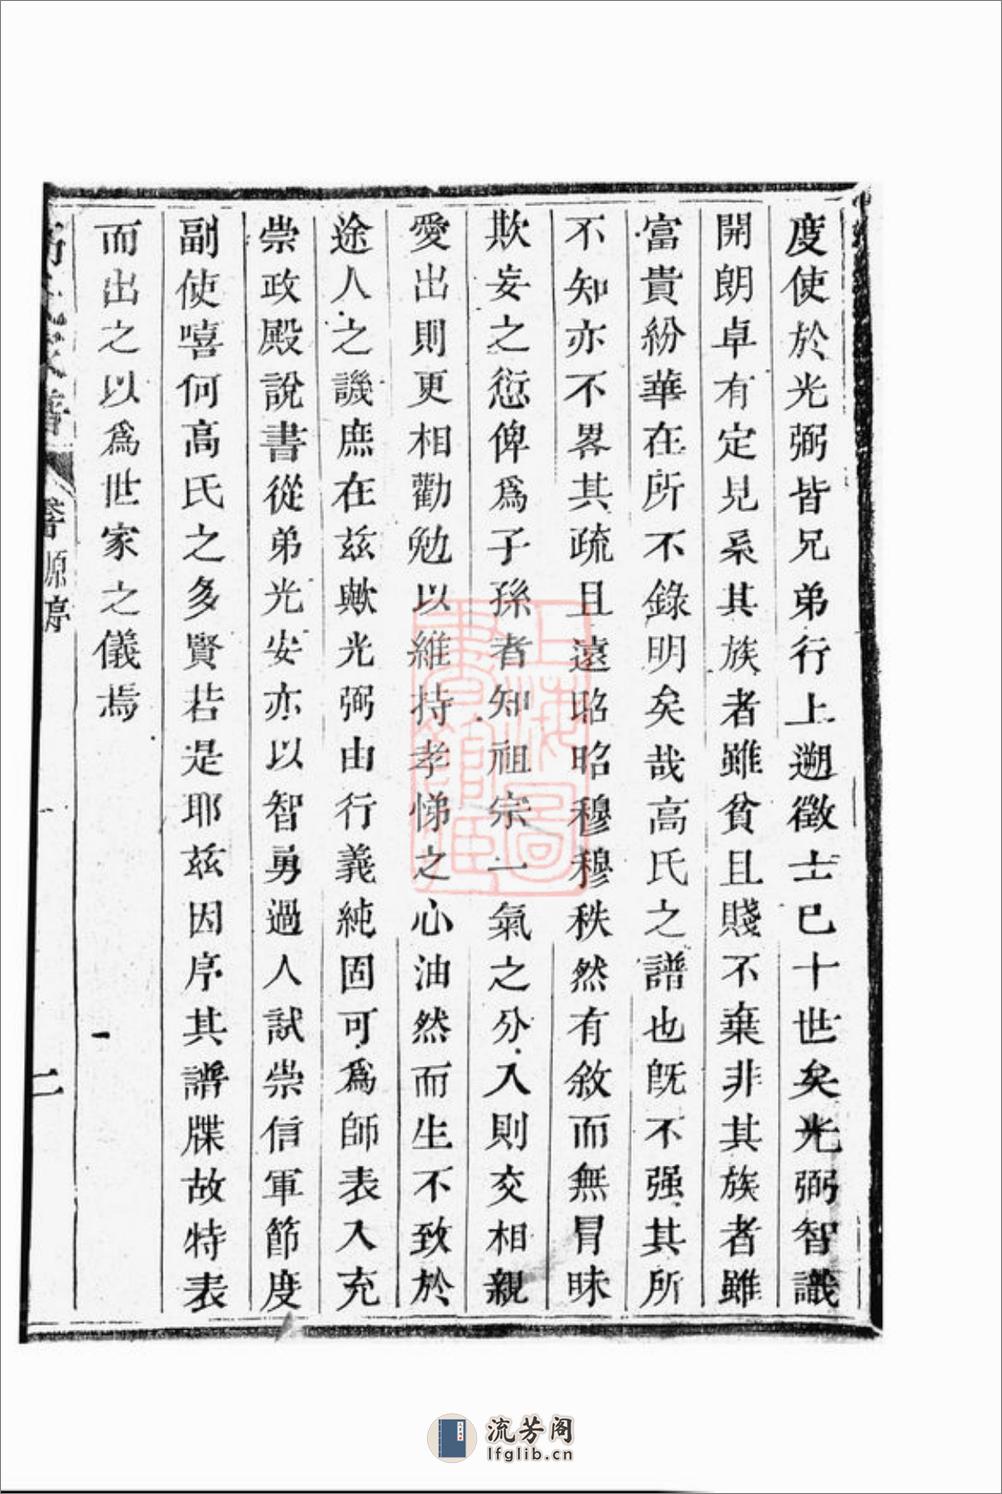 度使於光弼皆兄弟行上遡徵士已十世矣光弼智識
開朗卓有定見系其族者雖貧且賤不棄非其族者雖
富貴紛華在所不錄明矣哉高氏之譜也旣不强其所
不知亦不畧其疏且遠昭昭穆穆秩然有敘而無冒昧
欺妄之愆俾爲子孫者知祖宗一氣之分入則交相親
愛出則更相勸勉以維持孝悌之心油然而生不致於
途人之譏庶在玆歟光弼由行義純固可爲師表入充
崇政殿說書從弟光安亦以智勇過人試崇信軍節度
副使嘻何高氏之多賢若是耶玆因序其譜牒故特表
而出之以爲世家之儀焉
源序
二
上海圖書館藏
流芳阁
lfglib.cn